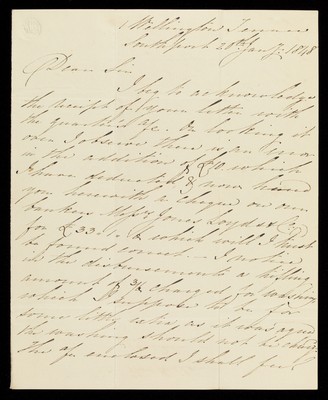 1 Wellington Terrace
Southport 28th Jany 1848
Dear Sir
I beg to acknowledge
the receipt of your letter with
the quarter's a/c. On looking it
over I observe there is an error
in the addition of £ which
I have deducted & now hand
you herewith a cheque on our
bankers Messrs Jones Loyd & Co
for £33 which will I trust
be found correct. I notice
in the disbursements a trifling
amount of 3/2 charged for washing
which I suppose to be for
some little extra as it was agreed
the washing should not be charged
The a/c enclosed I shall feel